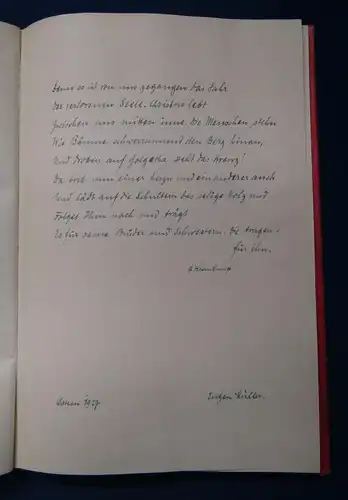 Denn es ist von uns gegangen das Jahr
der verlorenen Seele. Christus lebt
zwischen uns mitten inne. Die Menschen stehn
Wie Bäume schwarmend den Berg hinan,
Und droben auf Golgatha steht das Kreuz!
Da und nun einer kniet und ein anderer auch
Und lädt auf die Schultern das selige Holz und
Folget Ihm nach und trägt
Es für seine Brüder und Schwestern, die tragen
für ihn.
Ostern 1927
Eugen